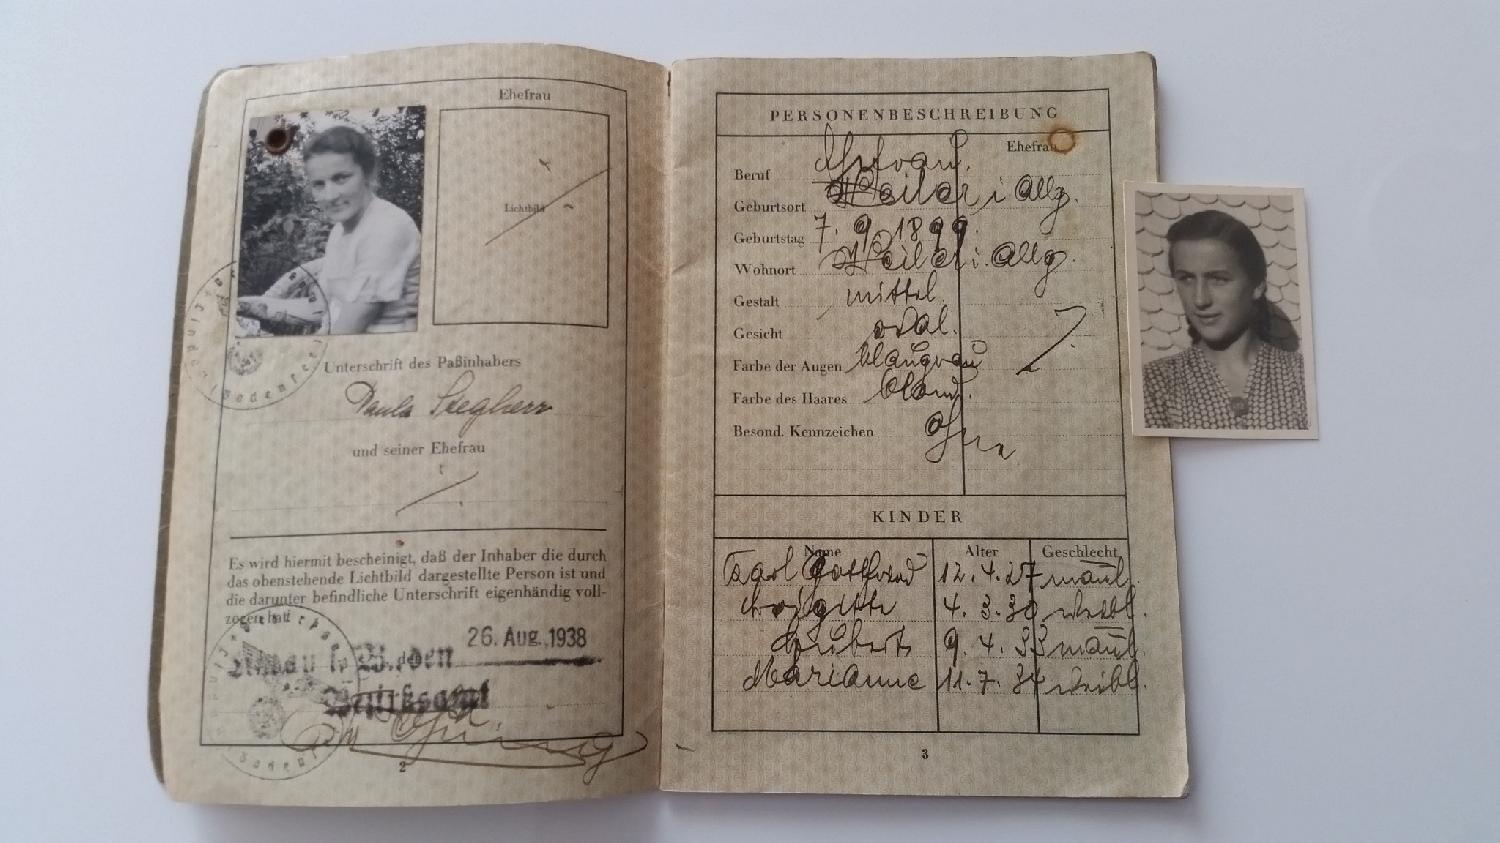 Ehefrau
Lichtbild
Unterschrift des Paßinhabers
Paula Stegherr
und seiner Ehefrau
Es wird hiermit bescheinigt, daß der Inhaber die durch
das obenstehende Lichtbild dargestellte Person ist und
die darunter befindliche Unterschrift eigenhändig voll-
zogen hat
26. Aug. 1938
Lindau i. Boden
Bezirksamt
2
PERSONENBESCHREIBUNG
Ehefrau
Beruf Ehefrau.
Geburtsort Weiler i Allg.
Geburtstag 7. 9. 1899.
Wohnort Weiler i. Allg.
Gestalt mittel.
Gesicht oval.
Farbe der Augen blaugrau
Farbe des Haares blond.
Besond. Kennzeichen
KINDER
Name Alter Geschlecht
Karl Gottfried 12. 4. 27 männl.
Brigitte 4. 3. 30 weibl.
9. 4. 33 männl.
Marianne 11. 7. 34 weibl.
3